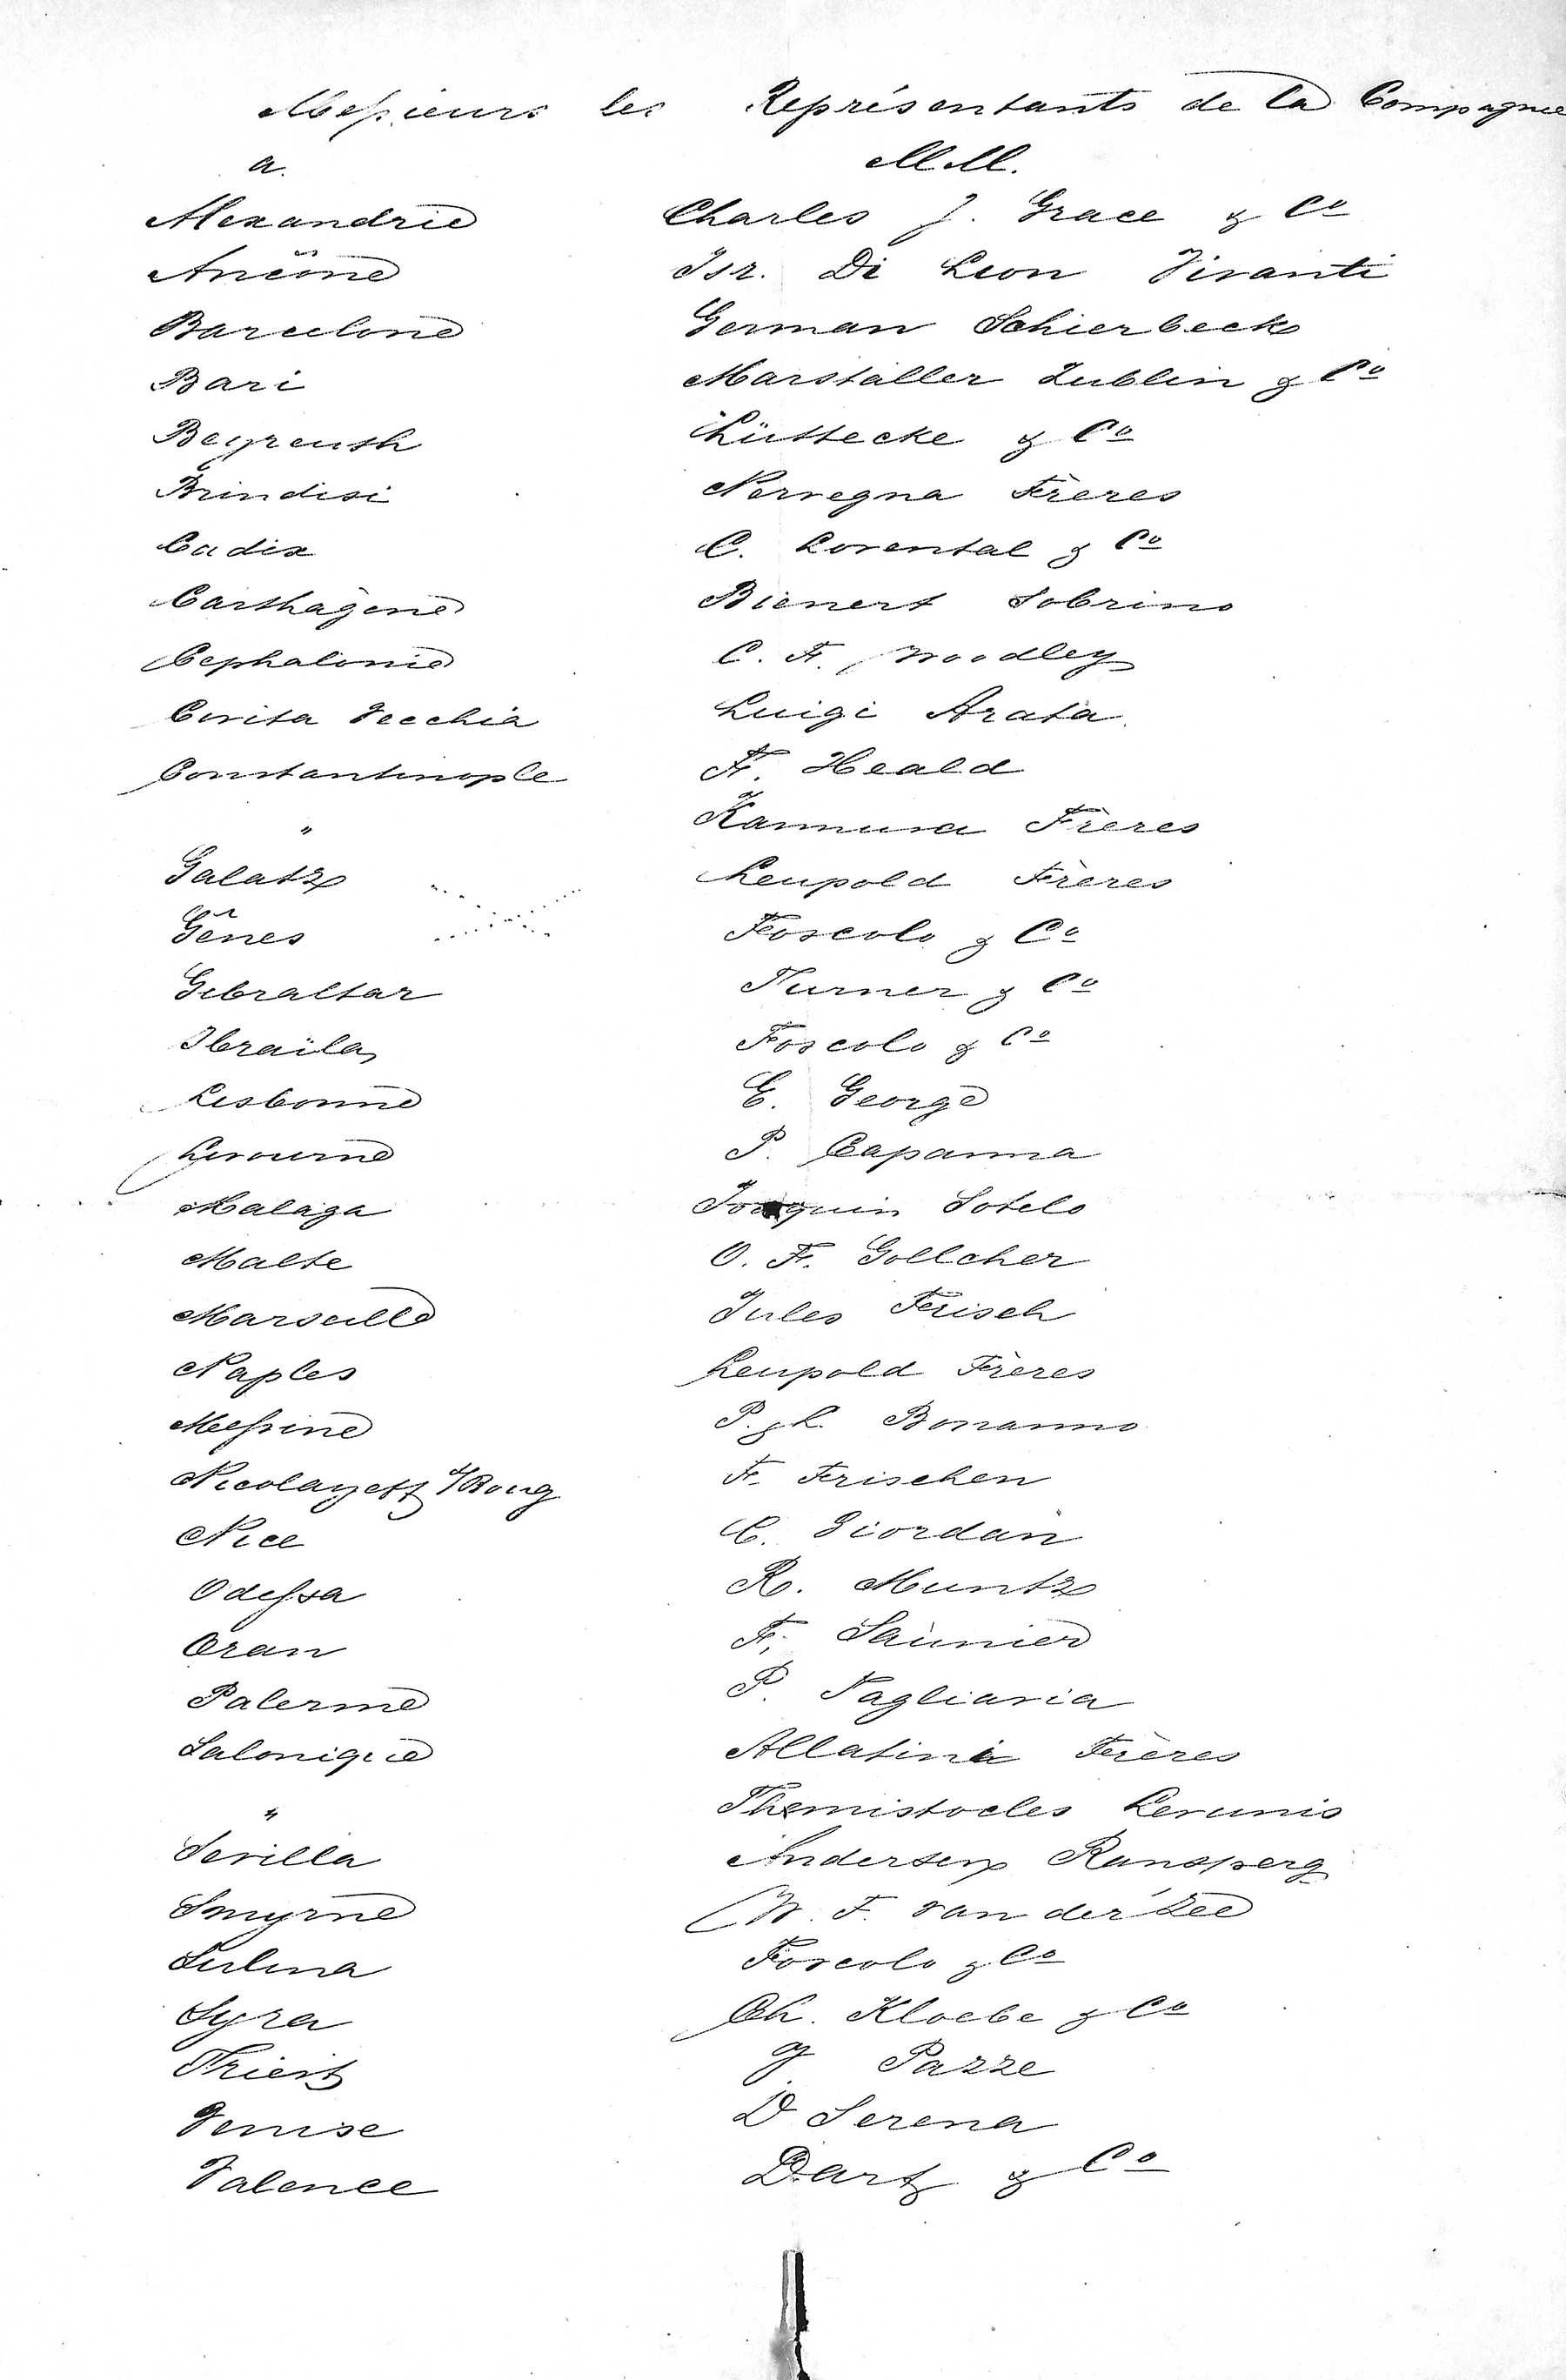 Messieurs les Représentants de la Compagnie
a. M.M.
Alexandrie Charles J. Grace & Co
Ancône Isr. Di Leon Vivanti
Barcelone German Schierbeck
Bari Marstaller Lublin & Co
Beyreuth Lüttecke & Co
Brindisi Nervegna Frères
Cadix C. Lovental & Co
Carthagène Bienert Sobrino
Cephalonie C. F. Woodley
Civita Vecchia Luigi Arata
Constantinople F. Heald
" Kammura Frères
Galatz Leupold Frères
Gênes Foscolo & Co
Gibraltar Turner & Co
Ibraïla Foscolo & Co
Lisbonne E. George
Livourne P. Capanna
Malaga Joaquin Sotelo
Malte O. F. Gollcher
Marseille Jules Frisch
Naples Leupold Frères
Messine P. & L. Bonanno
Nicolayeff s/Boug F. Frischen
Nice C. Giordan
Odessa R. Muntz
Oran F. Saunier
Palerme P. Tagliavia
Salonique Allatini Frères
" Themistocles
Sevilla Andersen Ransperg
Smyrne W. F. van der Zee
Sulina Foscolo & Co
Syra Ch. Kloebe & Co
Triest G Pazze
Venise D Serena
Valence Dart & Co